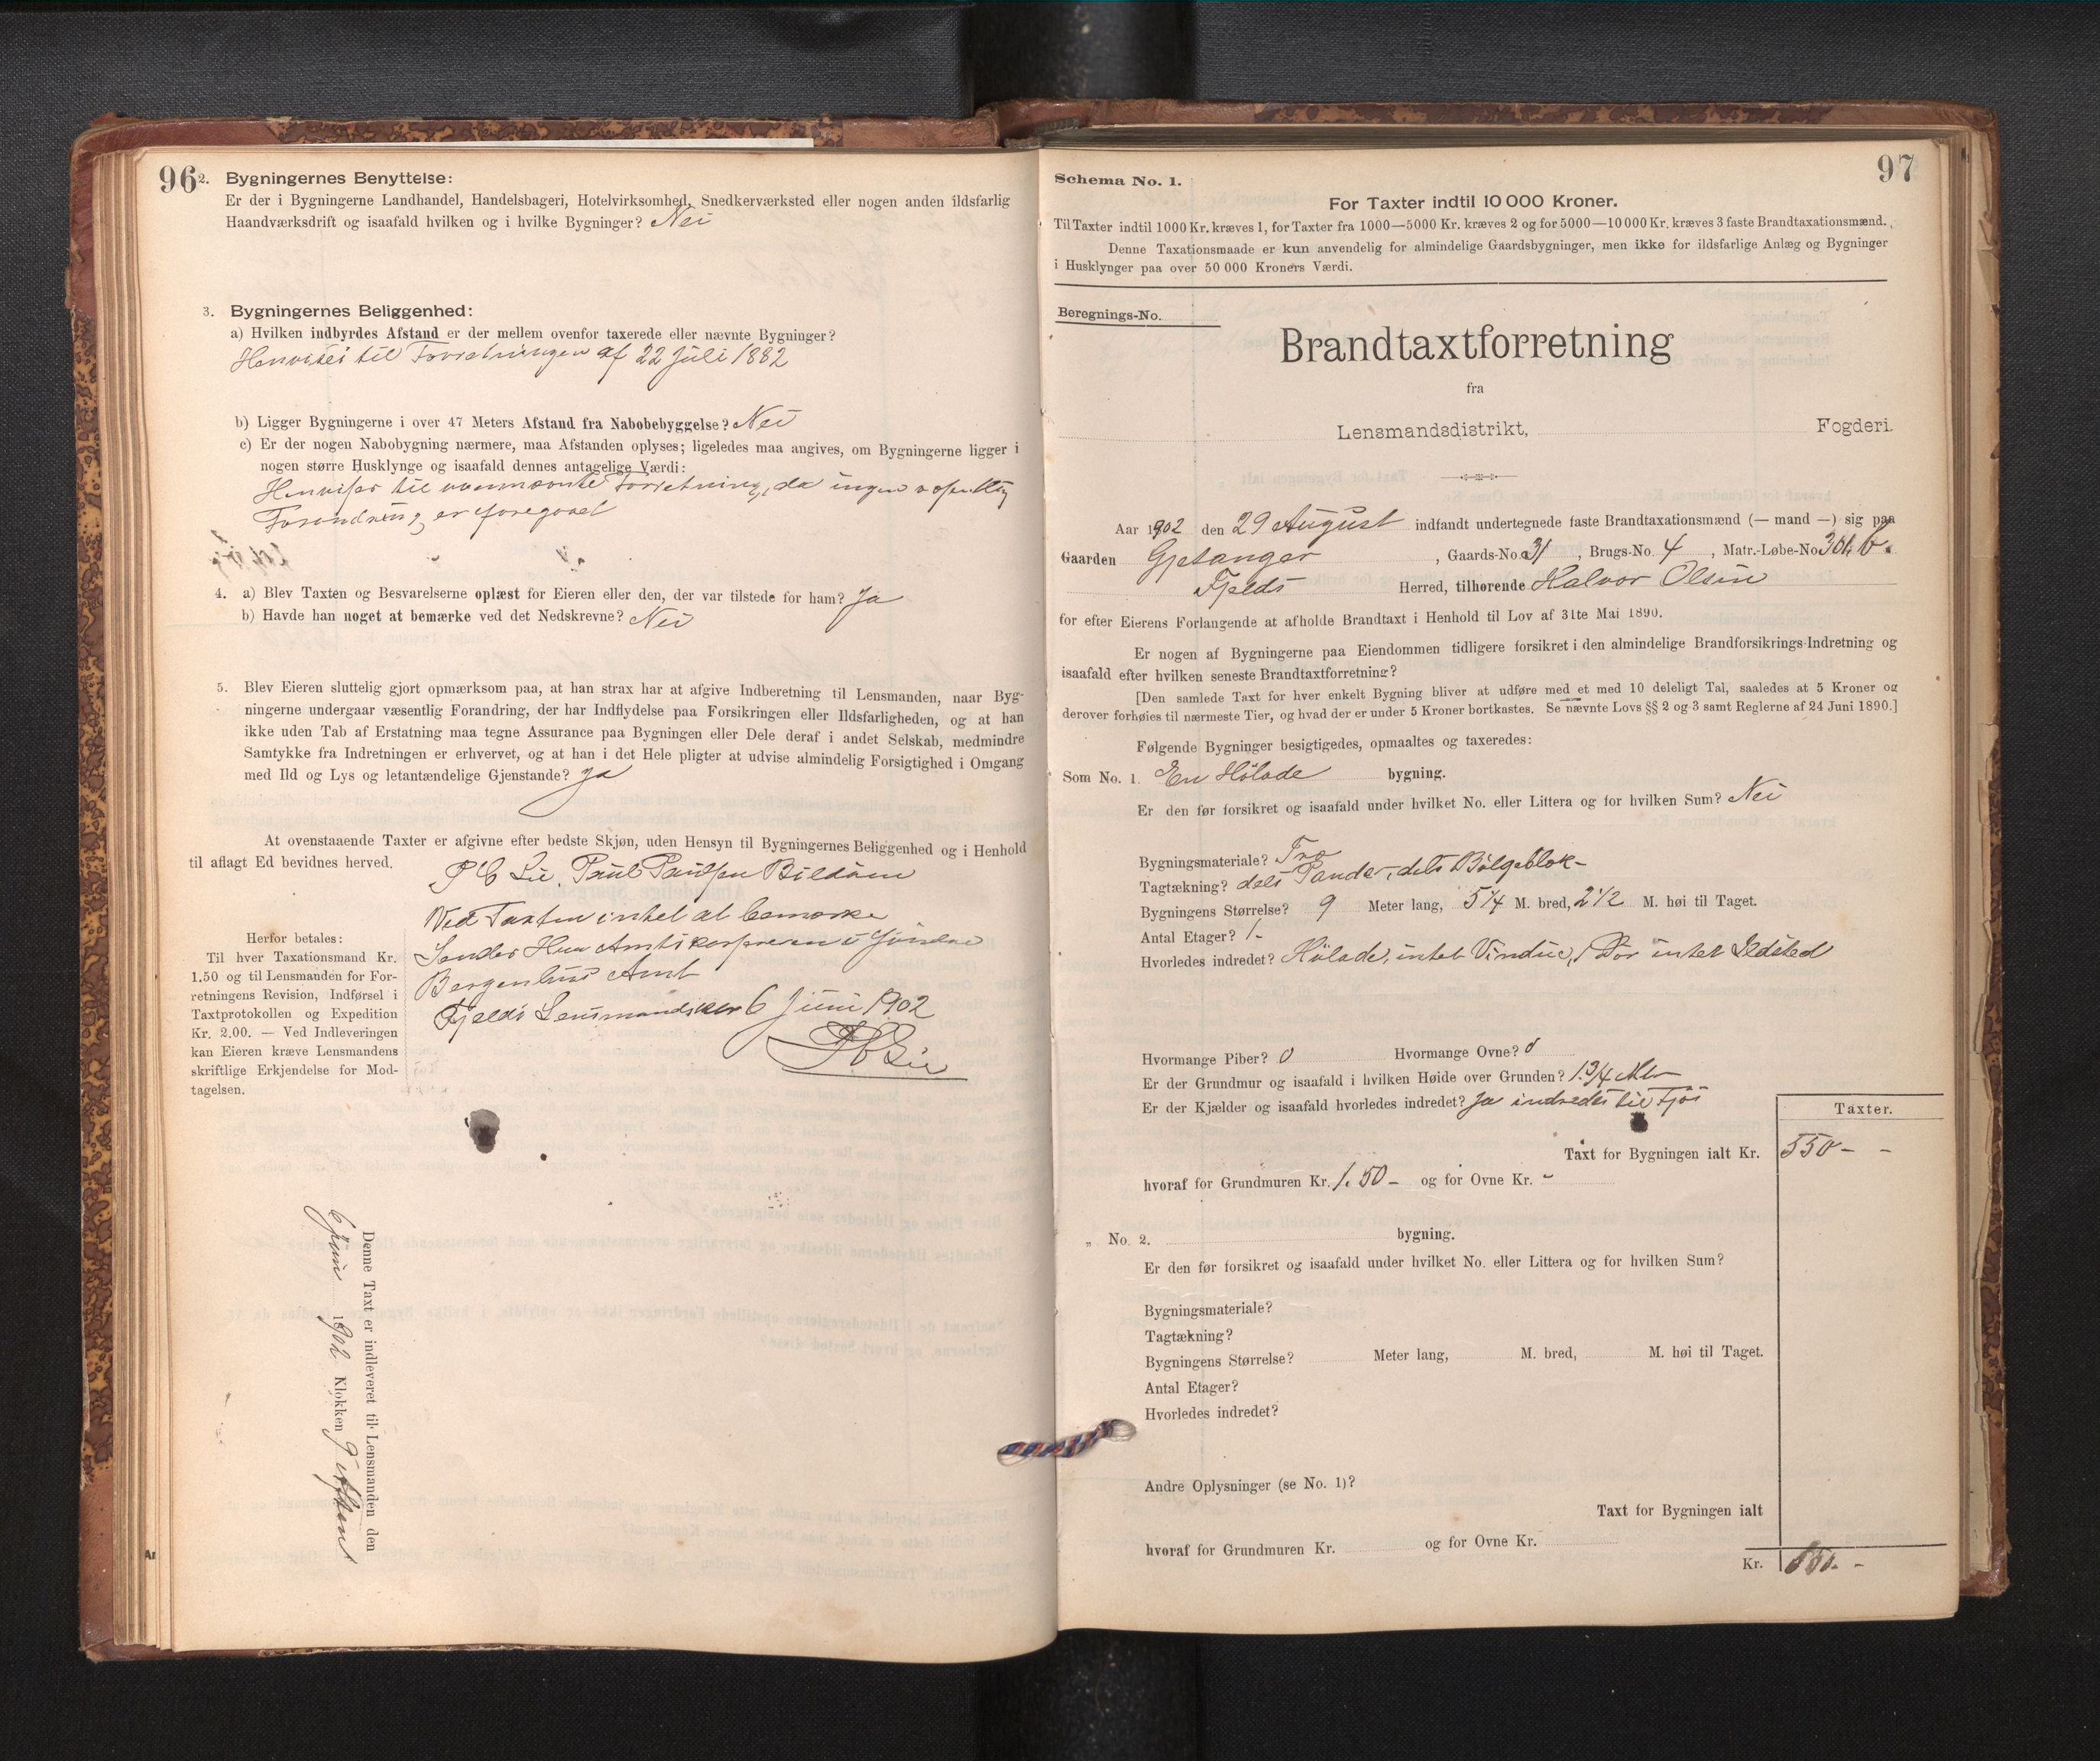 96
2. Bygningernes Benyttelse:
Er der i Bygningerne Landhandel, Handelsbageri, Hotelvirksomhed, Snedkerværksted eller nogen anden ildsfarlig
Haandværksdrift og isaafald hvilken og i hvilke Bygninger? Nei
3. Bygningernes Beliggenhed:
a) Hvilken indbyrdes Afstand er der mellem ovenfor taxerede eller nævnte Bygninger?
Henvises til Forretningen af 22 Juli 1882
b) Ligger Bygningerne i over 47 Meters Afstand fra Nabobebyggelse? Nei
c) Er der nogen Nabobygning nærmere, maa Afstanden oplyses; ligeledes maa angives, om Bygningerne ligger i
nogen større Husklynge og isaafald dennes antagelige Værdi:
Henvises til ovennævnte Forretning, da ingen væsentlig
Forandring er foregaaet
4. a) Blev Taxten og Besvarelserne oplæst for Eieren eller den, der var tilstede for ham? Ja
b) Havde han noget at bemærke ved det Nedskrevne? Nei
5. Blev Eieren sluttelig gjort opmærksom paa, at han strax har at afgive Indberetning til Lensmanden, naar Byg-
ningerne undergaar væsentlig Forandring, der har Indflydelse paa Forsikringen eller Ildsfarligheden, og at han
ikke uden Tab af Erstatning maa tegne Assurance paa Bygningen eller Dele deraf i andet Selskab, medmindre
Samtykke fra Indretningen er erhvervet, og at han i det Hele pligter at udvise almindelig Forsigtighed i Omgang
med Ild og Lys og letantændelige Gjenstande? Ja
At ovenstaaende Taxter er afgivne efter bedste Skjøn, uden Hensyn til Bygningernes Beliggenhed og i Henhold
til aflagt Ed bevidnes herved.
P C Lie Paul Paulsen Bildøen
Ved Taxten intet at bemærke
Sendes Herr Amtskasserern i Søndre
Bergenhus Amt
Fjelds Lensmandsktr 6 Juni 1902
PCLie
Herfor betales:
Til hver Taxationsmand Kr.
1.50 og til Lensmanden for For-
retningens Revision, Indførsel i
Taxtprotokollen og Expedition
Kr. 2.00. — Ved Indleveringen
kan Eieren kræve Lensmandens
skriftlige Erkjendelse for Mod-
tagelsen.
Denne Taxt er indleveret til Lensmanden den
6 Juni 1902 Klokken 9 efterm
97
Schema No. 1.
For Taxter indtil 10 000 Kroner.
Til Taxter indtil 1000 Kr. kræves 1, for Taxter fra 1000—5000 Kr. kræves 2 og for 5000—10000 Kr. kræves 3 faste Brandtaxationsmænd.
Denne Taxationsmaade er kun anvendelig for almindelige Gaardsbygninger, men ikke for ildsfarlige Anlæg og Bygninger
i Husklynger paa over 50 000 Kroners Værdi.
Beregnings-No.
Brandtaxtforretning
fra
Lensmandsdistrikt, Fogderi.
Aar 1902 den 29 August indfandt undertegnede faste Brandtaxationsmænd (— mand —) sig paa
Gaarden Gjetanger, Gaards-No. 31, Brugs-No. 4, Matr.-Løbe-No 301. b.
Fjelds Herred, tilhørende Halvor Olsen
for efter Eierens Forlangende at afholde Brandtaxt i Henhold til Lov af 31te Mai 1890.
Er nogen af Bygningerne paa Eiendommen tidligere forsikret i den almindelige Brandforsikrings-Indretning og
isaafald efter hvilken seneste Brandtaxtforretning?
[Den samlede Taxt for hver enkelt Bygning bliver at udføre med et med 10 deleligt Tal, saaledes at 5 Kroner og
derover forhøies til nærmeste Tier, og hvad der er under 5 Kroner bortkastes. Se nævnte Lovs §§ 2 og 3 samt Reglerne af 24 Juni 1890.]
Følgende Bygninger besigtigedes, opmaaltes og taxeredes:
Som No. 1. En Hölade bygning.
Er den før forsikret og isaafald under hvilket No. eller Littera og for hvilken Sum? Nei
Bygningsmateriale? Træ
Tagtækning? dels Pande, dels Bölgeblek-
Bygningens Størrelse? 9 Meter lang, 5 1/4 M. bred, 2 1/2 M. høi til Taget.
Antal Etager? 1-
Hvorledes indredet? Hölade, intet Vindue, 1 Dör intet Ildsted
Hvormange Piber? 0 Hvormange Ovne? 0
Er der Grundmur og isaafald i hvilken Høide over Grunden? 1.3/4 Mtr
Er der Kjælder og isaafald hvorledes indredet? Ja indredet til Fjös
Taxter.
Taxt for Bygningen ialt Kr. 550- -
hvoraf for Grundmuren Kr. 1.50 - og for Ovne Kr. -
„ No. 2. bygning.
Er den før forsikret og isaafald under hvilket No. eller Littera og for hvilken Sum?
Bygningsmateriale?
Tagtækning?
Bygningens Størrelse? Meter lang, M. bred, M. høi til Taget.
Antal Etager?
Hvorledes indredet?
Andre Oplysninger (se No. 1)?
Taxt for Bygningen ialt
hvoraf for Grundmuren Kr. og for Ovne Kr.
Kr. 550. -